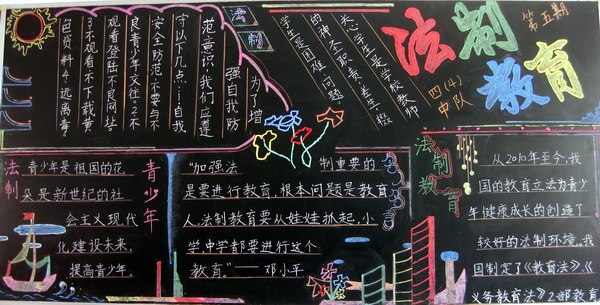 法制教育
第五期
四(4)中队
法制
为了增
强自我防
范意识,我们应遵
守以下几点:1.自我
安全防范不要与不
良青少年交往。2.不
观看登陆不良网址。
3.不观看不下载黄
色资料4.远离毒
关心学生是学校教师
的神圣职责,差生一般
学生是困难问题。
法制
青少年
青少年是祖国的花
朵是新世纪的社
会主义现代
化建设未来,
提高青少年,
“加强法制重要的
是要进行教育,根本问题是教育
人,法制教育要从娃娃抓起,小
学中学都要进行这个
教育”——邓小平
名言
法制教育
从2010年至今,我
国的教育立法为青少
年健康成长的创造了
较好的法制环境,我
国制定了《教育法》、《
义务教育法》2部教育